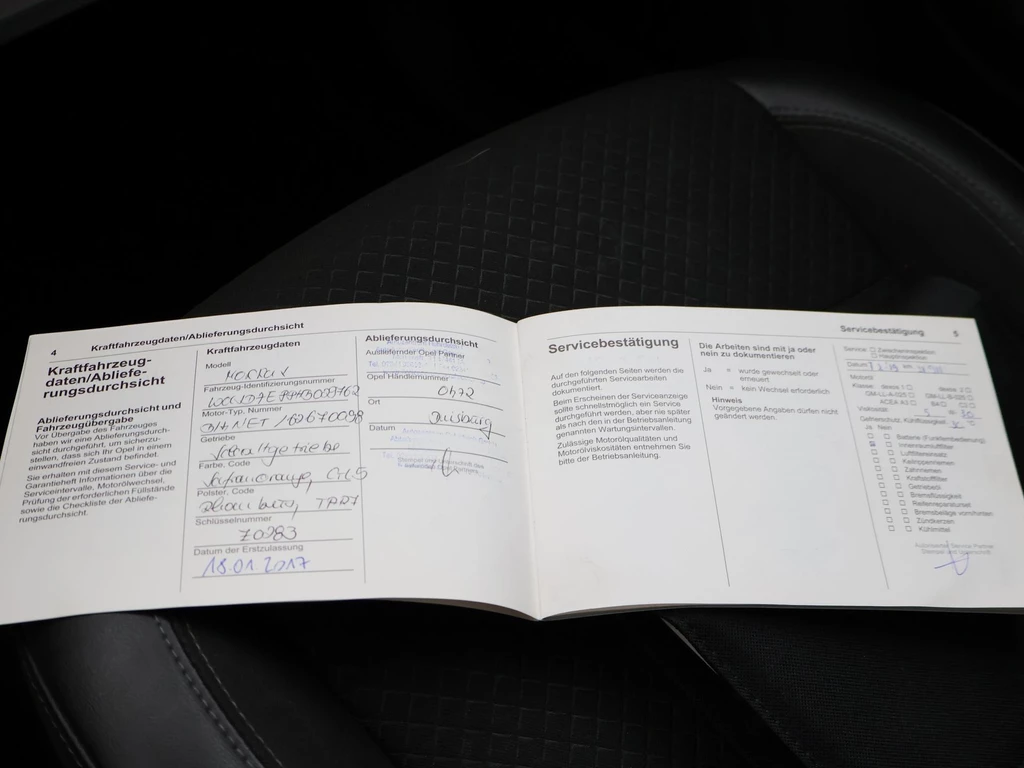 4 Kraftfahrzeugdaten/Ablieferungsdurchsicht
Kraftfahrzeug-
daten/Abliefe-
rungsdurchsicht
Ablieferungsdurchsicht und
Fahrzeugübergabe
Vor Übergabe des Fahrzeuges
haben wir eine Ablieferungsdurch-
sicht durchgeführt, um sicherzu-
stellen, dass sich Ihr Opel in einem
einwandfreien Zustand befindet.
Sie erhalten mit diesem Service- und
Garantieheft Informationen über die
Serviceintervalle, Motorölwechsel,
Prüfung der erforderlichen Füllstände
sowie die Checkliste der Abliefe-
rungsdurchsicht.
Kraftfahrzeugdaten
Modell
Fahrzeug-Identifizierungsnummer
Motor-Typ, Nummer
Getriebe
Schaltgetriebe
Farbe, Code
Polster, Code
Schlüsselnummer
Z0983
Datum der Erstzulassung
18.01.2017
Ablieferungsdurchsicht
Ausliefernder Opel Partner
Opel Händlernummer
Ort
Duisburg
Datum
Servicebestätigung 5
Servicebestätigung
Auf den folgenden Seiten werden die
durchgeführten Servicearbeiten
dokumentiert.
Beim Erscheinen der Serviceanzeige
sollte schnellstmöglich ein Service
durchgeführt werden, aber nie später
als nach den in der Betriebsanleitung
genannten Wartungsintervallen.
Zulässige Motorölqualitäten und
Motorölviskositäten entnehmen Sie
bitte der Betriebsanleitung.
Die Arbeiten sind mit ja oder
nein zu dokumentieren
Ja = wurde gewechselt oder
erneuert
Nein = kein Wechsel erforderlich
Hinweis
Vorgegebene Angaben dürfen nicht
geändert werden.
Service: Zwischeninspektion
Hauptinspektion
Datum
km
Motoröl
Klasse: dexos 1 dexos 2
GM-LL-A-025 GM-LL-B-025
ACEA A3
Viskosität:
Gefrierschutz, Kühlflüssigkeit °C
Ja Nein
Batterie (Funkfernbedienung)
Innenraumluftfilter
Luftfiltereinsatz
Keilrippenriemen
Zahnriemen
Kraftstofffilter
Getriebeöl
Bremsflüssigkeit
Reifenreparaturset
Bremsbeläge vorn/hinten
Zündkerzen
Kühlmittel
Autorisierter Service Partner
Stempel und Unterschrift